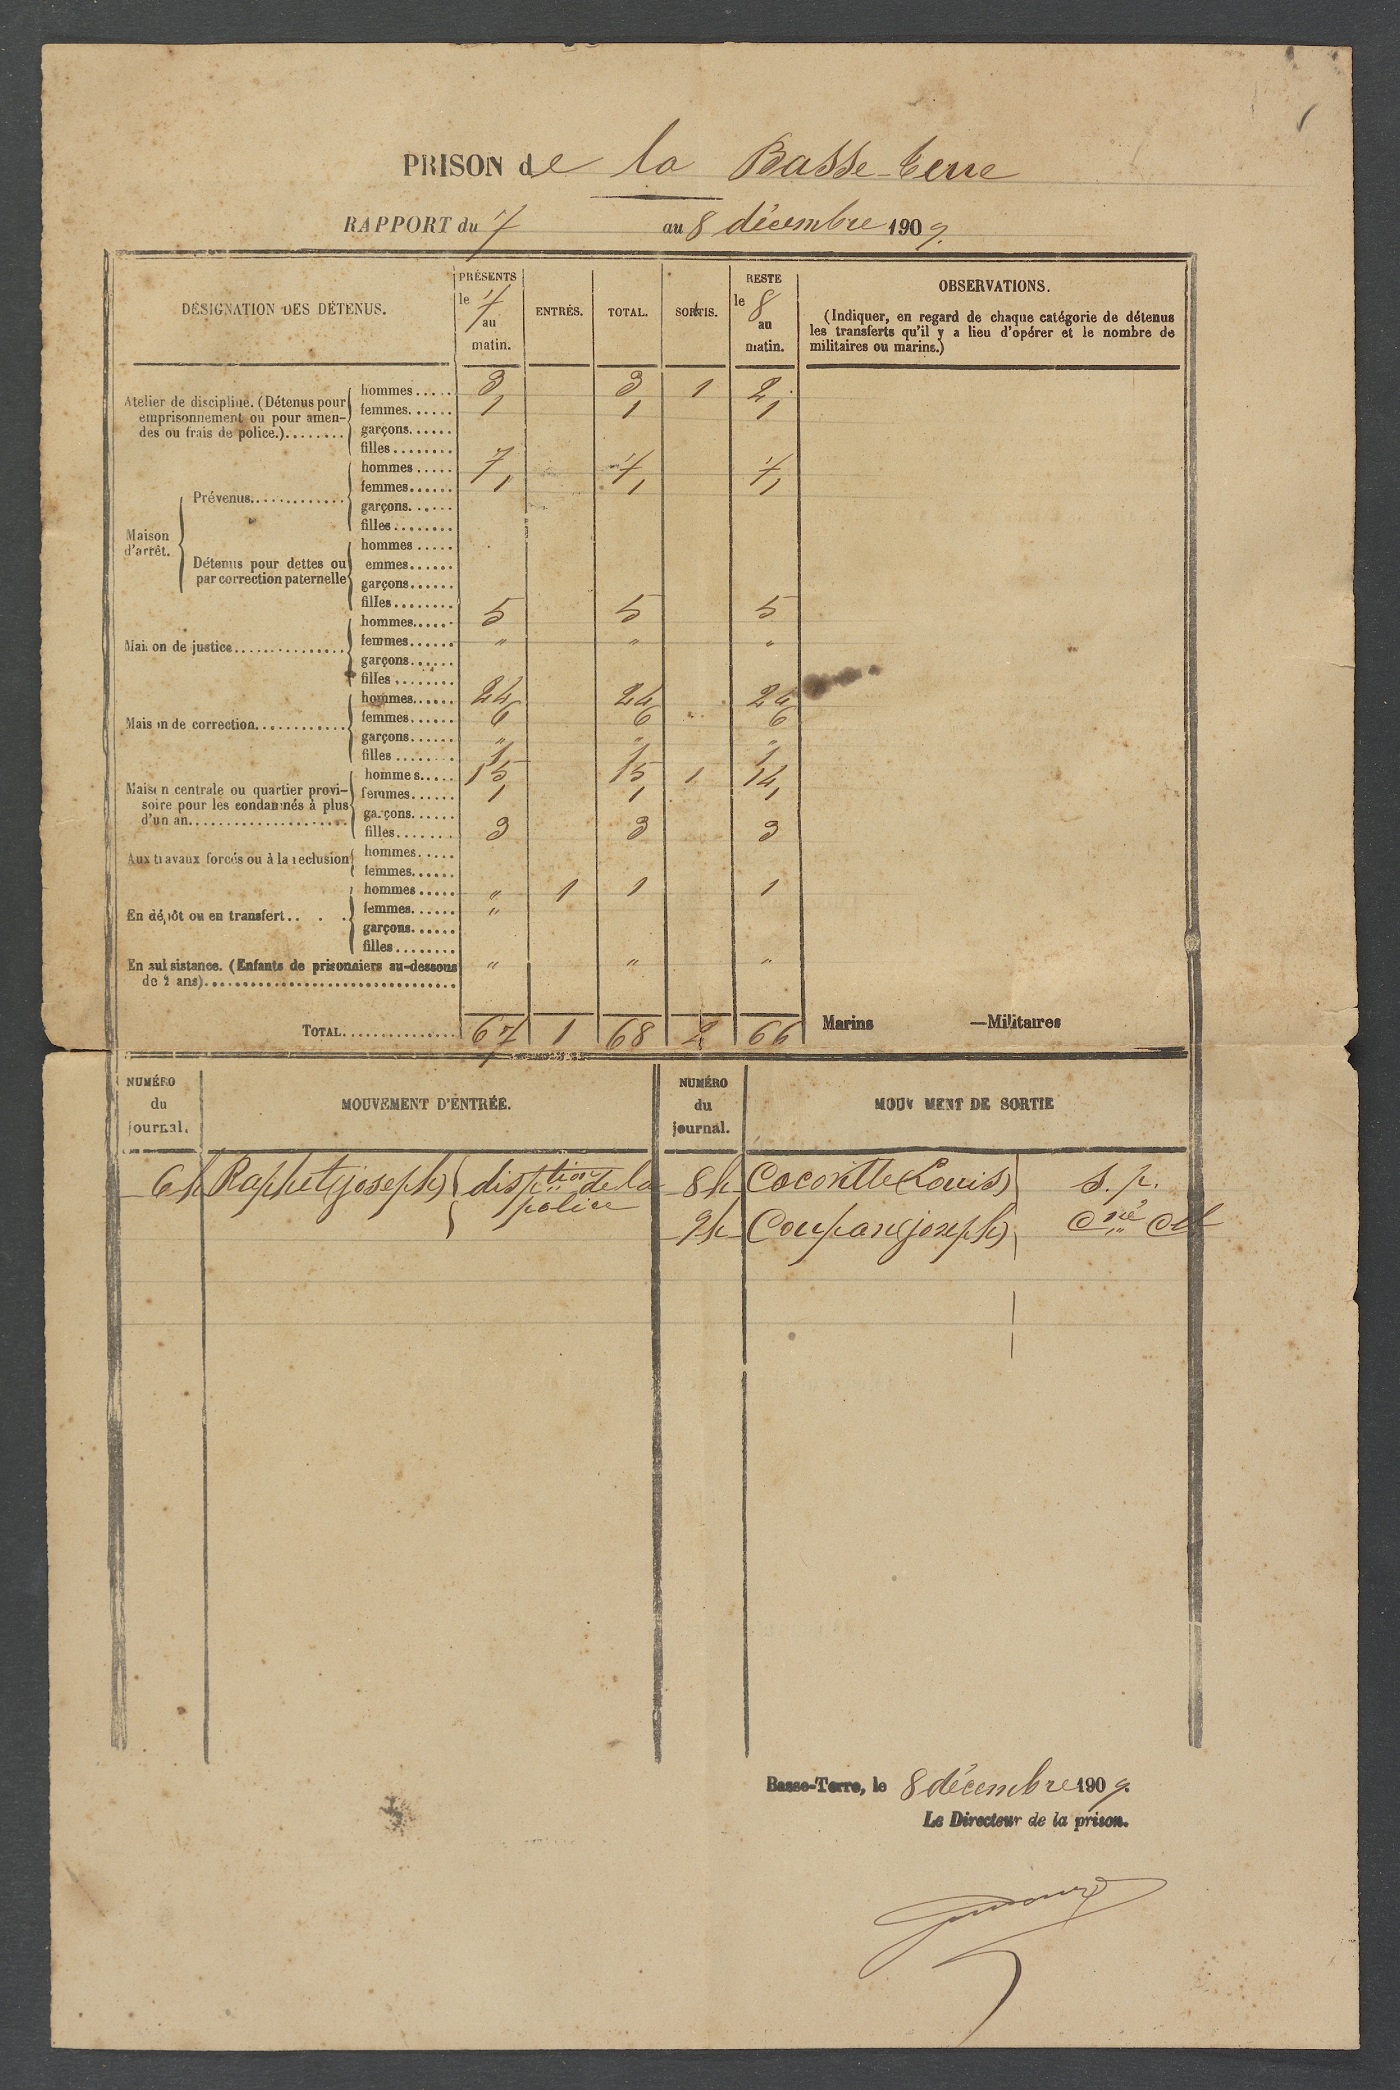 PRISON de la Basse-Terre
RAPPORT du 7 au 8 décembre 1909.
DÉSIGNATION DES DÉTENUS. PRÉSENTS le 7 au matin. ENTRÉS. TOTAL. SORTIS. RESTE le 8 au matin. OBSERVATIONS.
(Indiquer, en regard de chaque catégorie de détenus
les transferts qu'il y a lieu d'opérer et le nombre de
militaires ou marins.)
Atelier de discipline. (Détenus pour emprisonnement ou pour amendes ou frais de police.)........ hommes..... 3 3 1 2
femmes...... 1 1 1
garçons......
filles........
Maison d'arrêt. Prévenus............. hommes..... 7 7 7
femmes...... 1 1 1
garçons......
filles........
Détenus pour dettes ou par correction paternelle hommes.....
emmes......
garçons......
filles........
Maison de justice............... hommes...... 5 5 5
femmes...... " " "
garçons......
filles........
Maison de correction............ hommes...... 24 24 24
femmes...... 6 6 6
garçons...... " " "
filles........ 1 1 1
Maison centrale ou quartier provisoire pour les condamnés à plus d'un an..................... hommes..... 15 15 1 14
femmes...... 1 1 1
garçons......
filles........ 3 3 3
Aux travaux forcés ou à la reclusion hommes.....
femmes......
En dépôt ou en transfert.. . . hommes..... " 1 1 1
femmes...... "
garçons......
filles........
En subsistance. (Enfants de prisonniers au-dessous " " "
de 2 ans).................................
TOTAL............... 67 1 68 2 66 Marins —Militaires
NUMÉRO du journal. MOUVEMENT D'ENTRÉE. NUMÉRO du journal. MOUV MENT DE SORTIE
6h Raphet (joseph) disption de la police 8h Cocoville (Louis) s. p.
9h Coupan (joseph) Cné
Basse-Terre, le 8 décembre 1909.
Le Directeur de la prison.